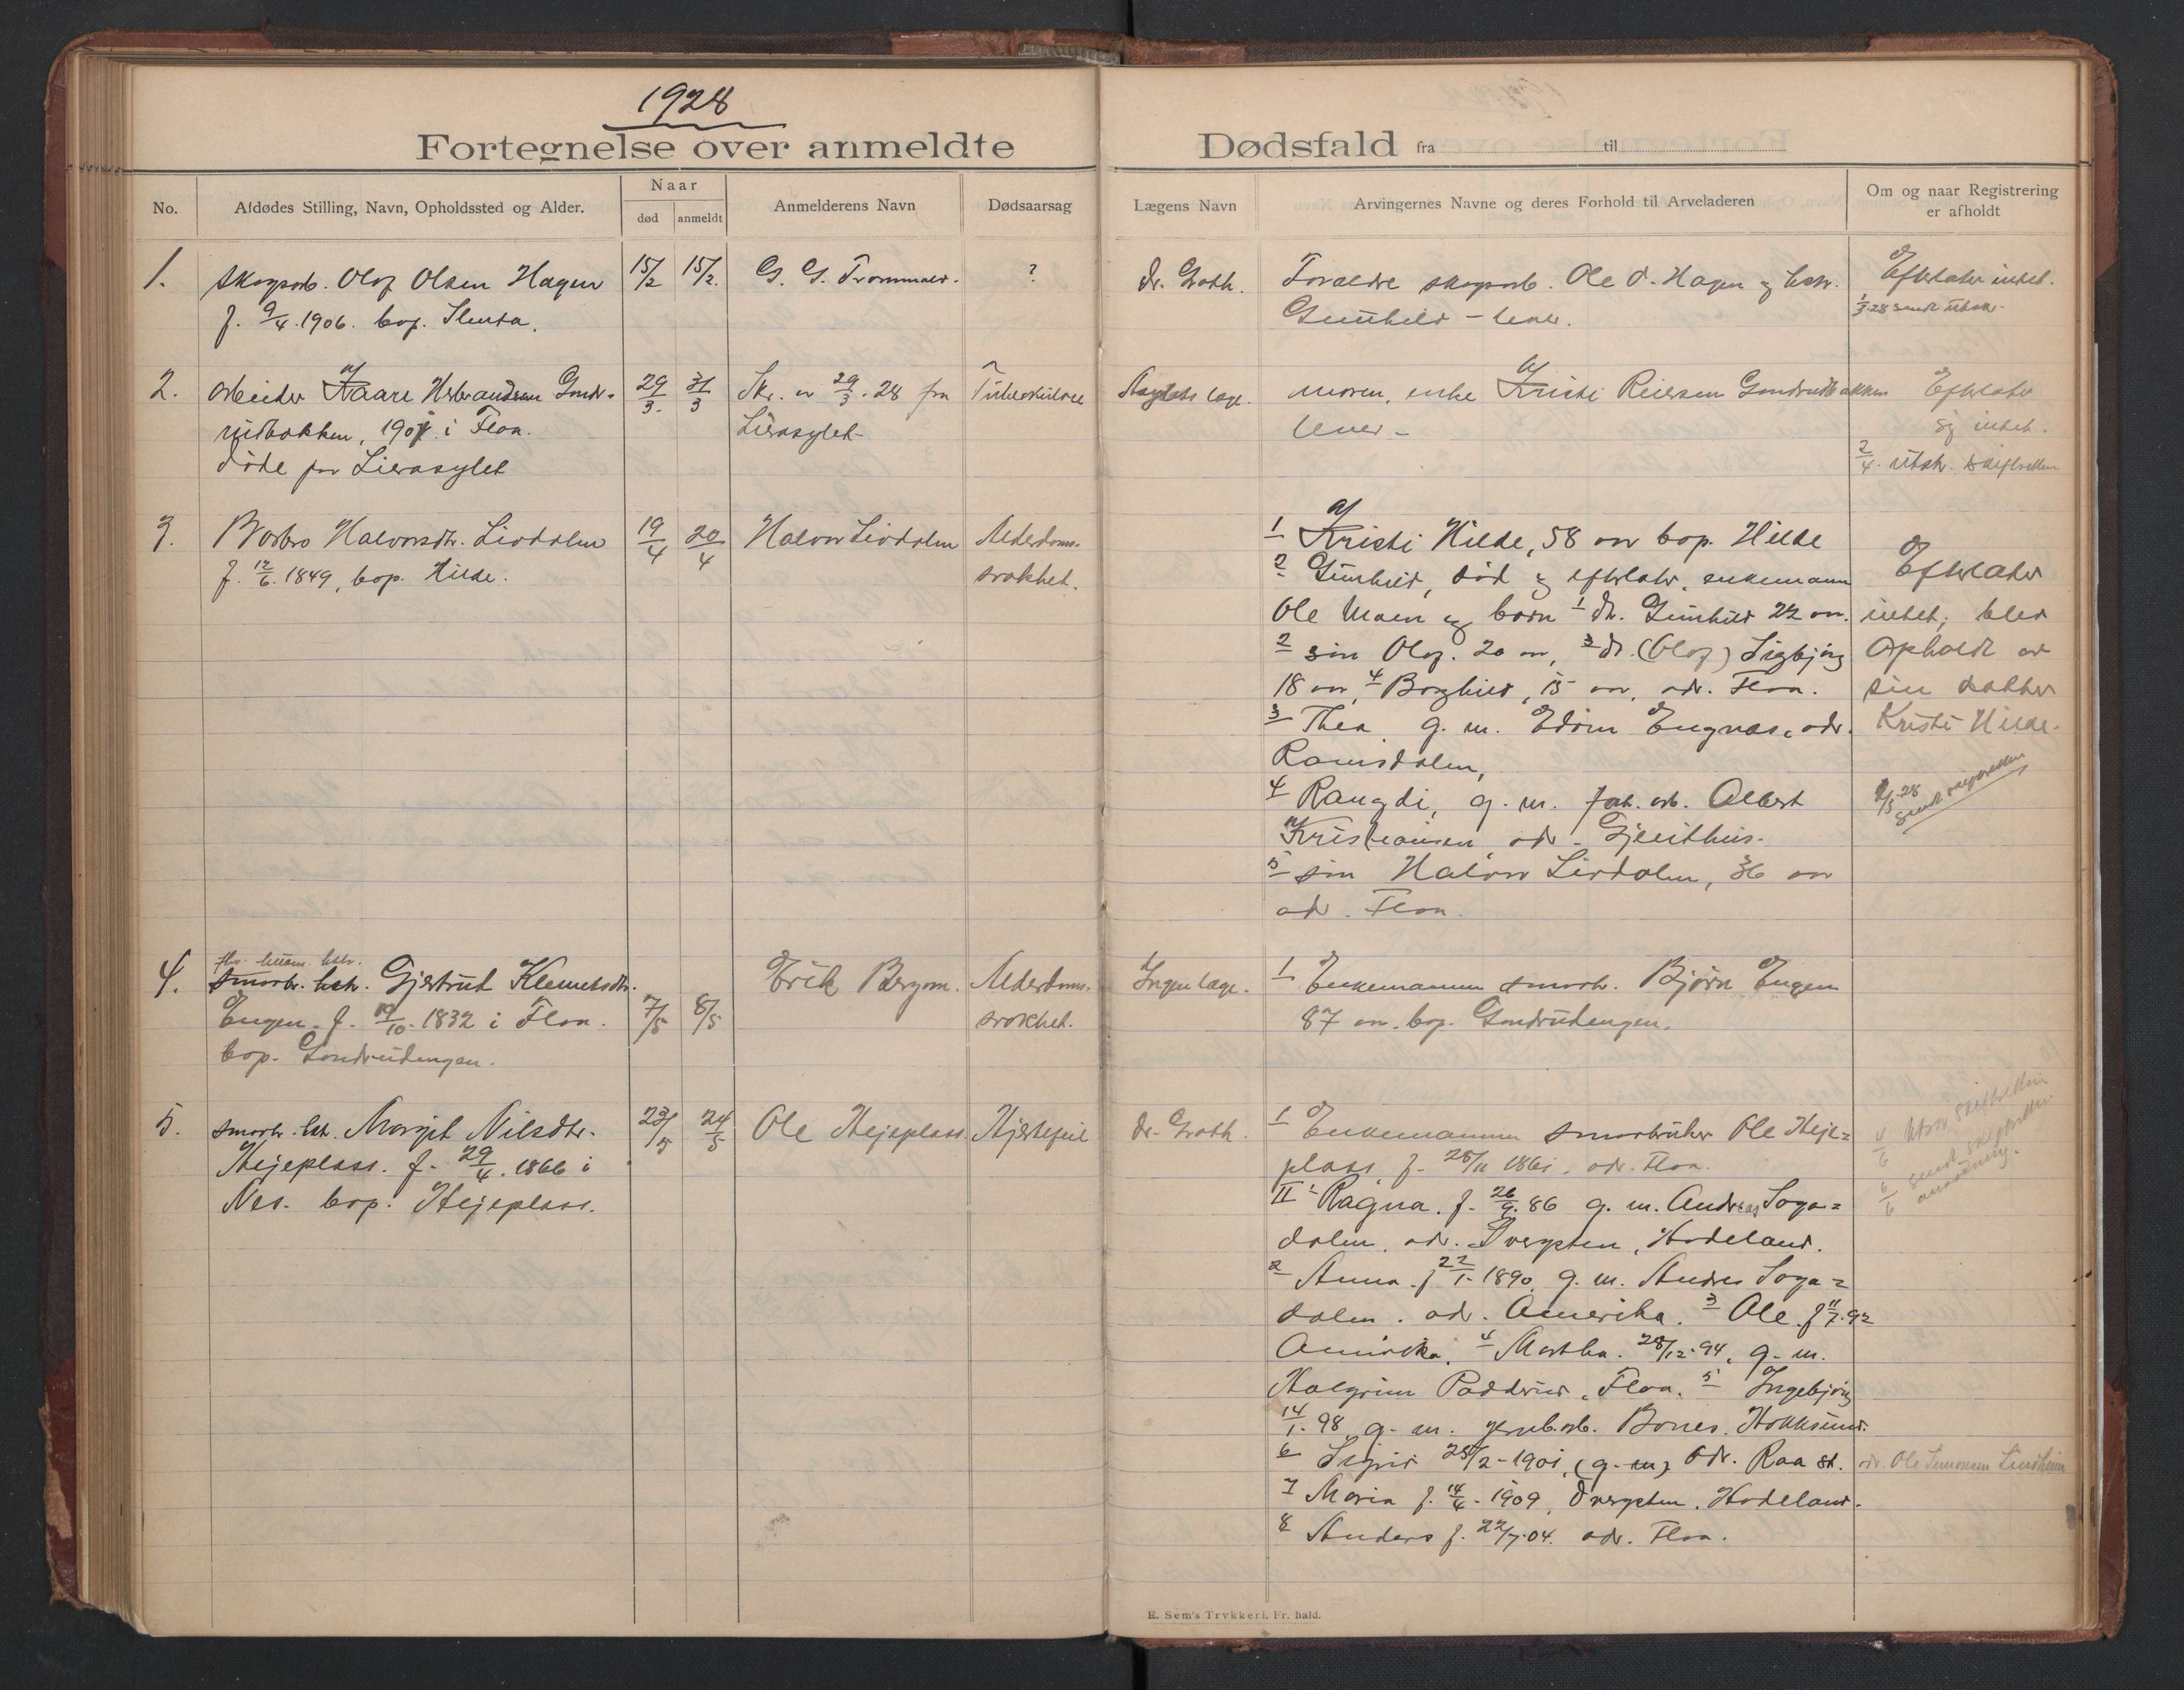 1928
Fortegnelse over anmeldte Dødsfald fra til
No.
Afdødes Stilling, Navn, Opholdssted og Alder.
Naar
død
anmeldt
Anmelderens Navn
Dødsaarsag
Lægens Navn
Arvingernes Navne og deres Forhold til Arveladeren
Om og naar Registrering
er afholdt
1.
skogsarb. Olaf Olsen Hagen
f. 9/4. 1906. bop.
15/2
15/2.
G. G. Trommald.
?
dr. Groth.
Foraldre skogsarb. Ole O. Hagen og hstr.
Gunhild – lever.
Efterlater intet.
1/3 28 sendt utskr.
2.
Arbeider Kaare Herbrandsen Gond-
rudbakken, 1901 i Flaa.
døde paa Lierasylet
29/3.
31/3
Skr. av 29/3. 28 fra
Lierasylet
Tuberkulose
Asylets læge.
moren, enke Kristi Reiersen Gondrudbakken
lever –
Efterlater
sig intet.
2/4. utskr. skifteretten
3.
Barbro Halvorsdtr. Livdalen
f. 12/6. 1849, bop. Hilde.
19/4
20/4
Halvor Livdalen
Alderdoms-
svakhet.
1 Kristi Hilde, 58 aar bop. Hilde
2 Gunhild, død og efterlater enkemann
Ole Moen og barn 1 dtr. Gunhild 22 aar.
2 søn Olaf. 20 aar, 3 dtr. (Olaf) Sigbjørg
18 aar, 4 Borghild, 15 aar, adr. Flaa.
3 Thea g. m. Edvin Engnæs, adr.
Ramsdalen,
4 Rangdi, g. m. fab. arb. Albert
Kristiansen, adr. Gjeithus.
5 søn Halvor Livdalen, 36 aar
adr. Flaa.
Efterlater
intet; blev
opholdt av
sin datter
Kristi Hilde.
2/5 28
sendt skifteretten
4.
fhv. husm. hstr.
smaabr. hstr. Gjertrud Klemetsdtr.
Engen. f. 10. 1832 i Flaa.
bop. Gondrudengen.
7/5
8/5
Erik Bergom.
Alderdoms-
svakhet.
Ingen læge.
1 Enkemannen smaabr. Bjørn Engen
87 aar. bop. Gondrudengen.
5.
smaabr. hstr. Margit Nilsdtr.
Heieplass. f. 29/4. 1866 i
Nes. bop. Heieplass.
23/5
24/5
Ole Heieplass
Hjertefeil
dr. Groth.
1 Enkemannen smaabruker Ole Heie=
plass, f. 28/11 1861, adr. Flaa.
II 1 Ragna. f. 26/9. 86 g. m. Andreas Soga=
dalen, adr. Dvergsten, Hadeland.
2 Anna. f 22/1. 1890, g. m. Anders Soga=
dalen. adr. Amerika. 3 Ole. f 11/7. 92
Amerika, 4 Martha. 28/12. 94, g. m.
Halgrim Paddrud, Flaa. 5 Ingebjørg
14/1. 98, g. m. jernb.arb. Bones. Hokksund.
6 Sigrid 28/2 - 1901, (g. m.) adr. Raa st. adr. Ole Simonsen Lindheim
7 Maria f. 14/4. 1909, Dvergsten. Hadeland.
8 Anders f. 22/7. 04. adr. Flaa.
4/6 utskr. skifteretten
6/6 sendt skifteretten
anmeldning.
E. Sem's Trykkeri. Fr. hald.